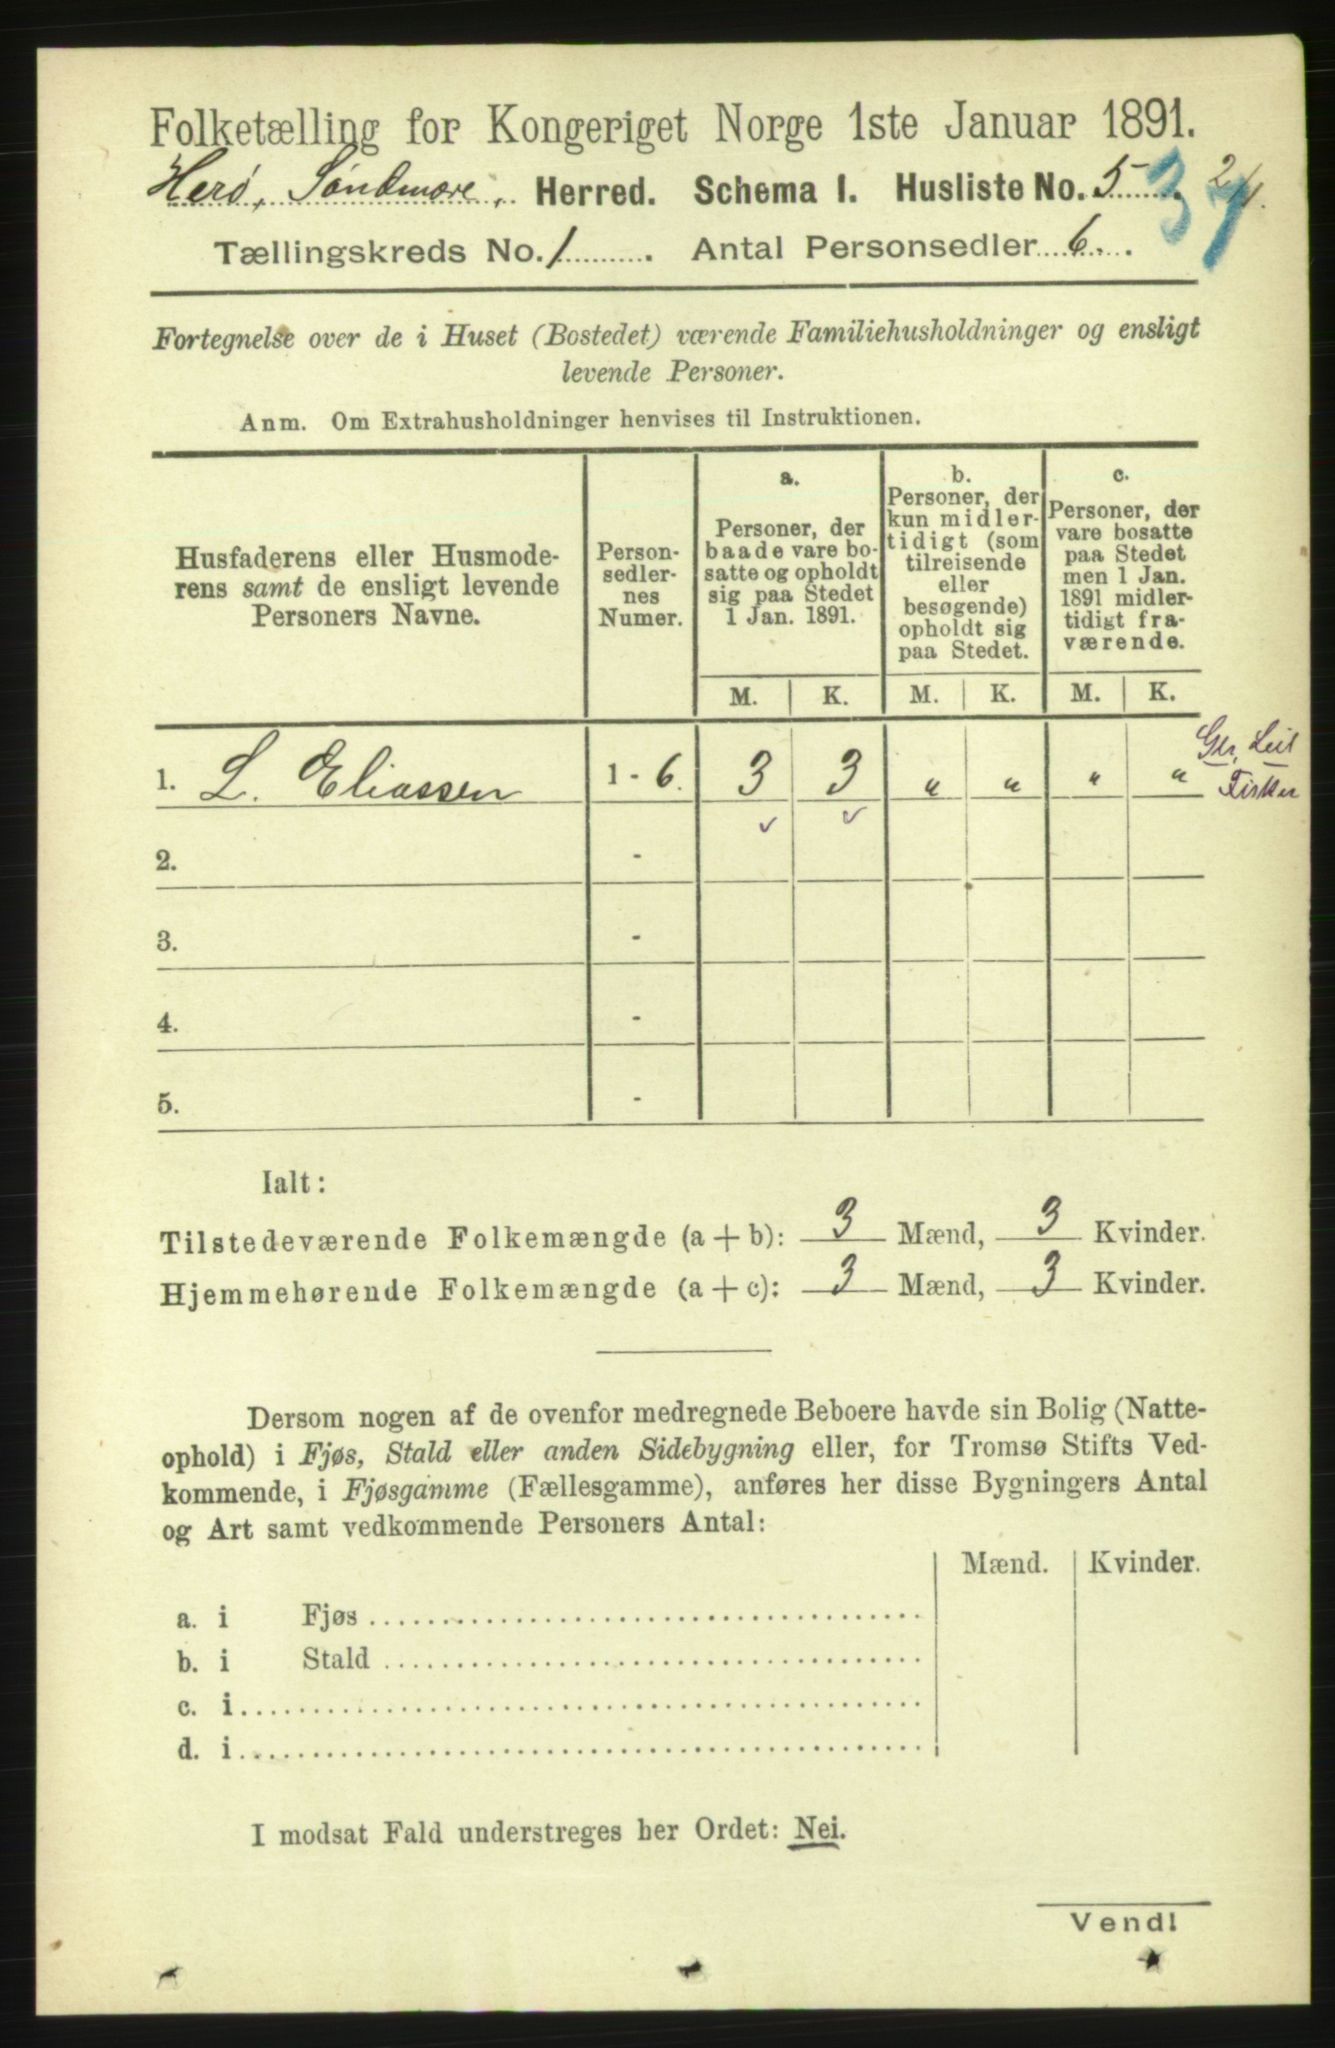 Folketælling for Kongeriget Norge 1ste Januar 1891.
Herø, Søndmøre, Herred. Schema I. Husliste No. 5.
37
2/1.
Tællingskreds No. 1. Antal Personsedler 6.
Fortegnelse over de i Huset (Bostedet) værende Familiehusholdninger og ensligt
levende Personer.
Anm. Om Extrahusholdninger henvises til Instruktionen.
Husfaderens eller Husmode-
rens samt de ensligt levende
Personers Navne.
Person-
sedler-
nes
Numer.
a.
Personer, der
baade vare bo-
satte og opholdt
sig paa Stedet
1 Jan. 1891.
b.
Personer, der
kun midler-
tidigt (som
tilreisende
eller
besøgende)
opholdt sig
paa Stedet.
c.
Personer, der
vare bosatte
paa Stedet
men 1 Jan.
1891 midler-
tidigt fra-
værende.
M. K. M. K. M. K.
1. L. Eliassen 1 - 6. 3 3 " " " "
Gbr, Leil
Fisker
2. -
3. -
4. -
5. -
Ialt:
Tilstedeværende Folkemængde (a + b): 3 Mænd, 3 Kvinder.
Hjemmehørende Folkemængde (a + c): 3 Mænd, 3 Kvinder.
Dersom nogen af de ovenfor medregnede Beboere havde sin Bolig (Natte-
ophold) i Fjøs, Stald eller anden Sidebygning eller, for Tromsø Stifts Ved-
kommende, i Fjøsgamme (Fællesgamme), anføres her disse Bygningers Antal
og Art samt vedkommende Personers Antal:
Mænd. Kvinder.
a. i Fjøs
b. i Stald
c. i
d. i
I modsat Fald understreges her Ordet: Nei.
Vendl